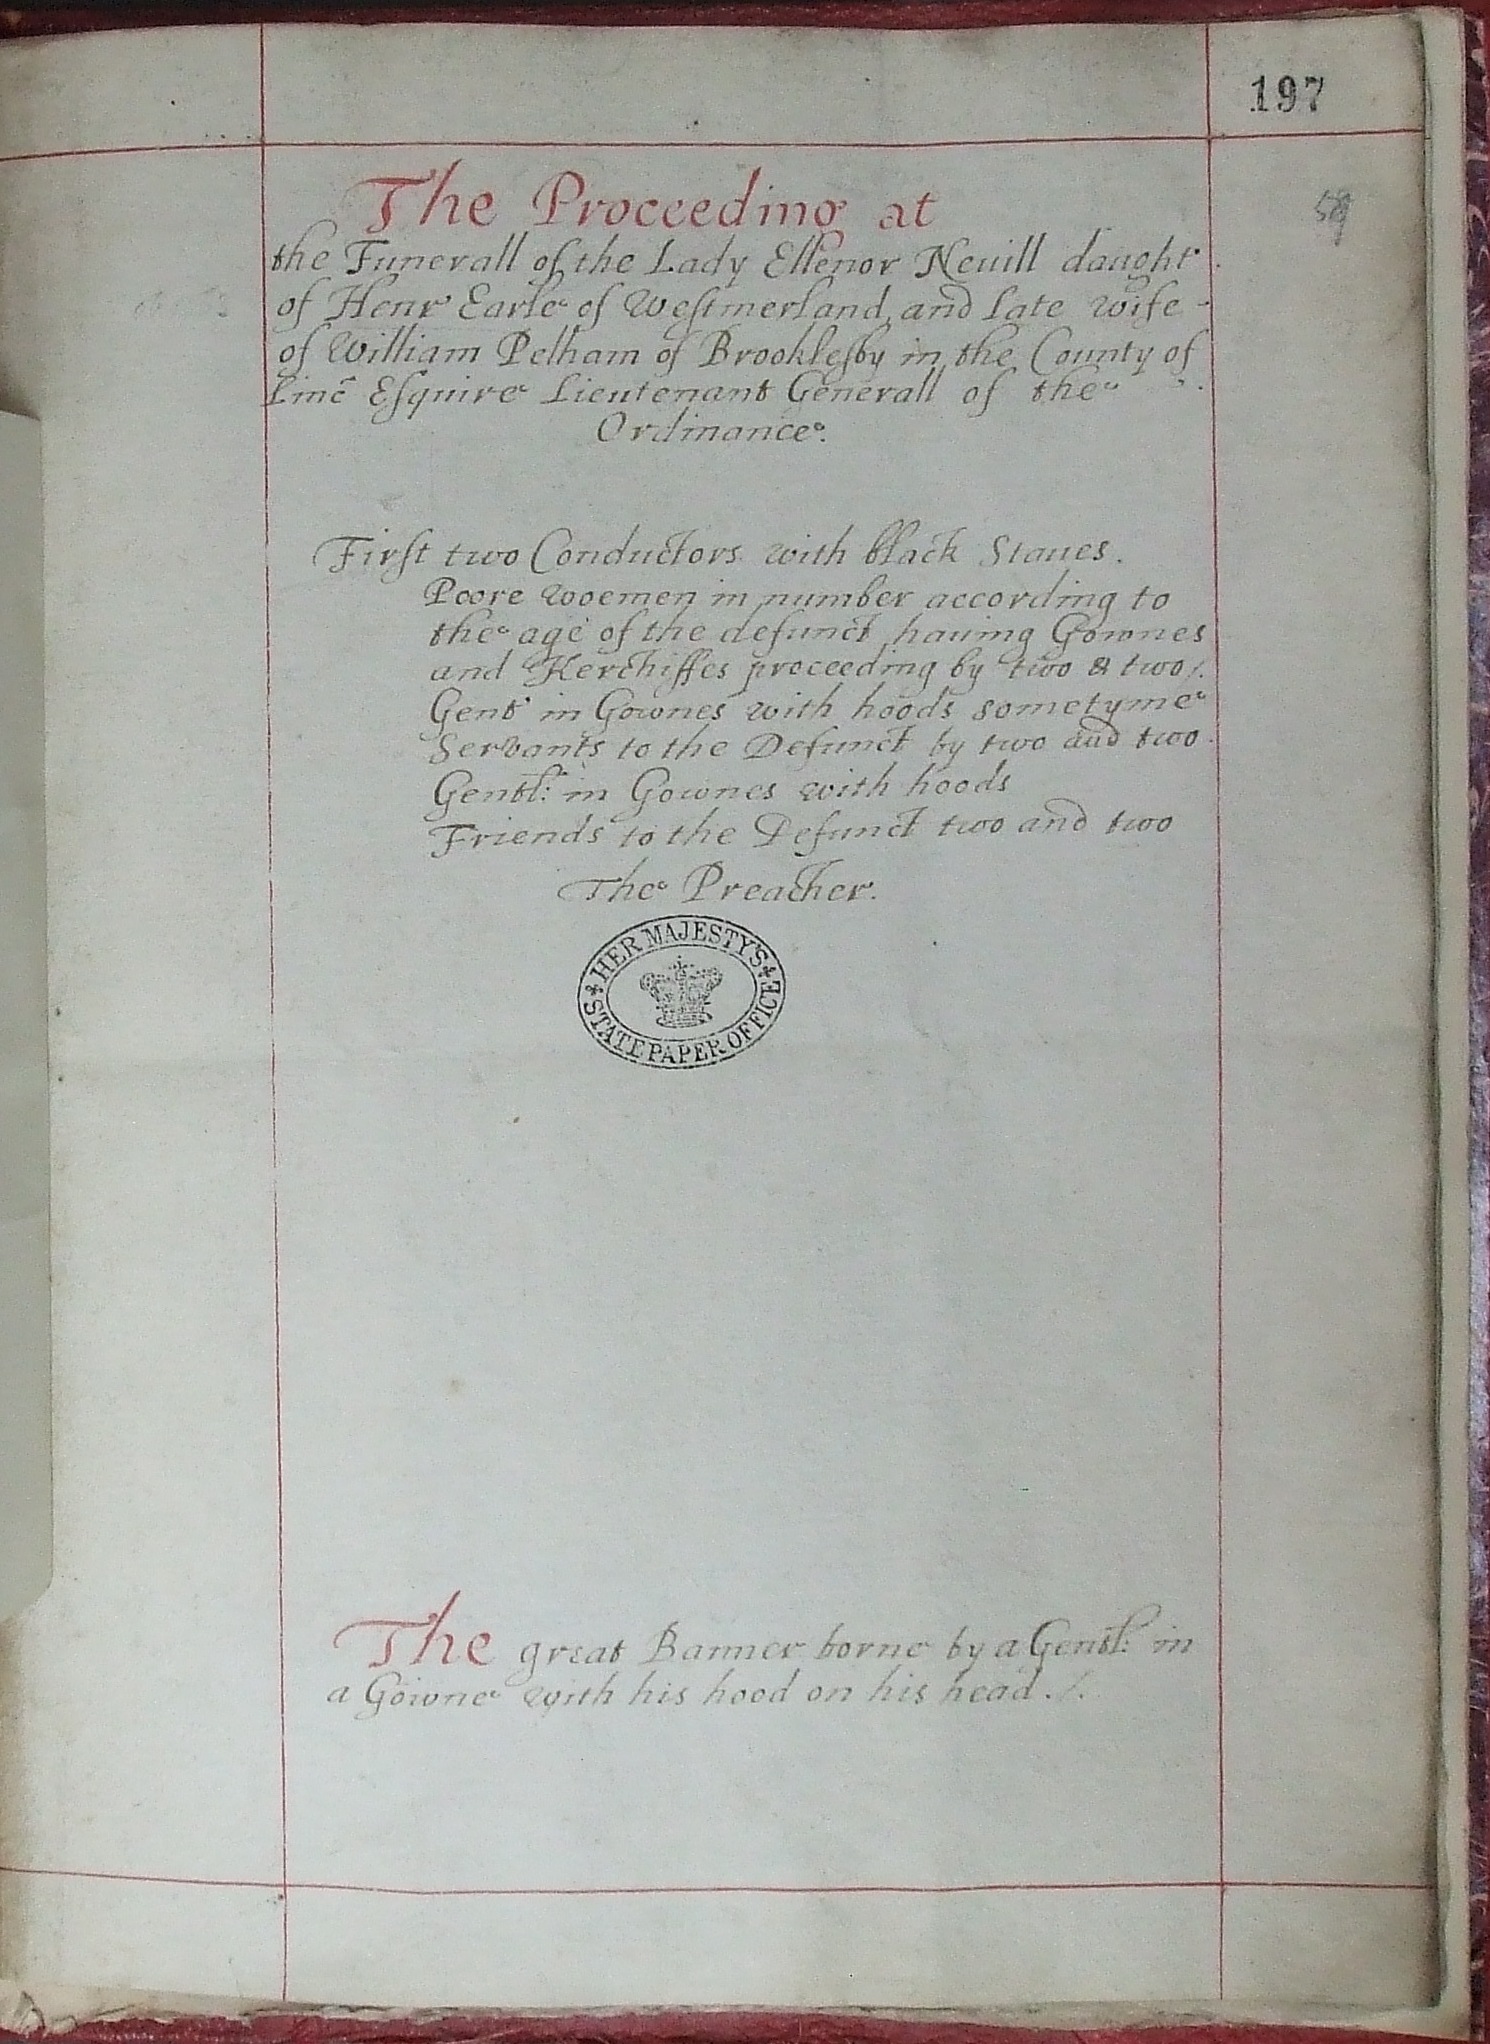 197
59
The Proceeding at
the Funerall of the Lady Ellenor Neuill daught
of Henr Earle of Westmerland and late wife -
of William Pelham of Brooklesby in the County of
Linc Esquire Lieutenant Generall of the
Ordinance.
First two Conductors with black Staues.
Poore woemen in number according to
the age of the defunct hauing Gownes
and Kerchiffes proceeding by two & two /.
Gent in Gownes with hoods sometyme
Servants to the Defunct by two and two.
Gentl: in Gownes with hoods
Friends to the Defunct two and two
The Preacher.
HER MAJESTY'S
STATE PAPER OFFICE
The great Banner borne by a Gentl: in
a Gowne with his hood on his head ./.